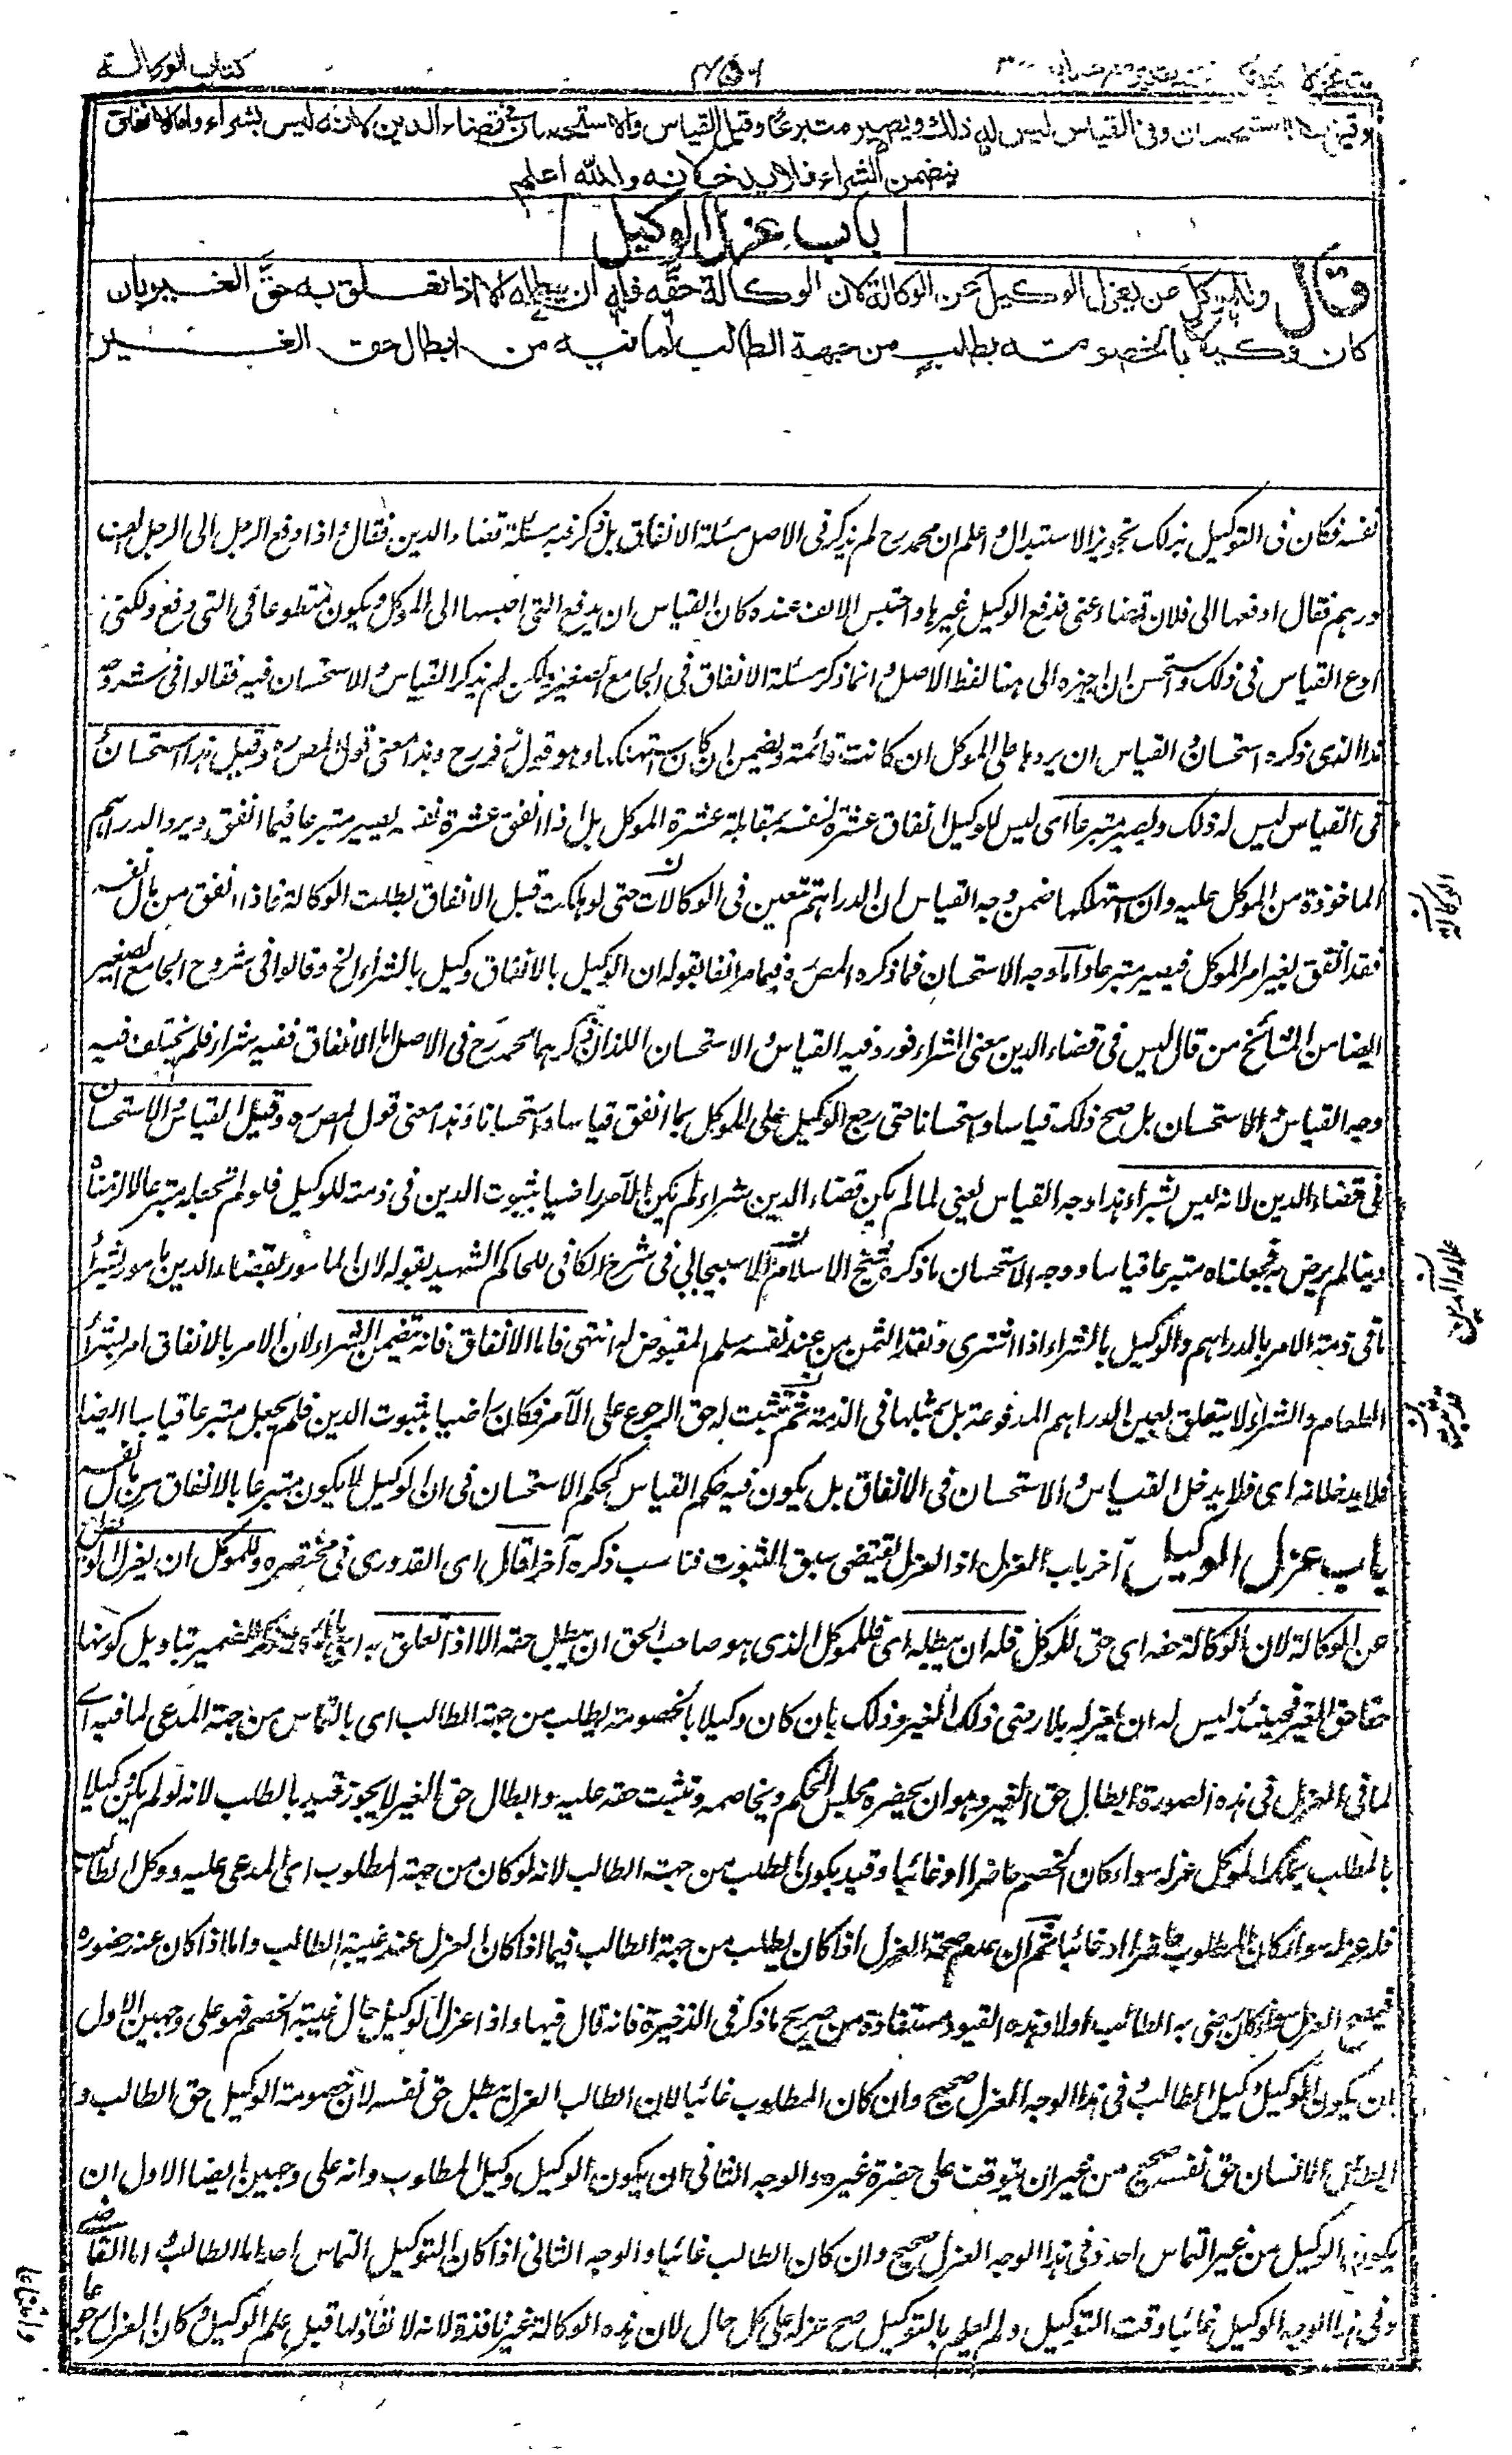 كتاب الوكالة
وقيل هذا استحسان وفي القياس ليس له ذلك ويصير متبرعا وقيل القياس والاستحسان في قضاء الدين لانه ليس بشراء واما الانفاق
يتضمن الشراء فلا يدخلانه والله اعلم
باب عزل الوكيل
قال وللموكل عن يعزل الوكيل عن الوكالة لان الوكالة حقه فله ان يبطله الا اذا تعلق به حق الغير بان
كان وكيلا بالخصومة بطلب من جهة الطالب لما فيه من ابطال حق الغير
نفسه فكان فى التوكيل بذلك تجويز الاستبدال واعلم ان محمد رح لم يذكر فى الاصل مسئلة الانفاق بل ذكر فيه مسئلة قضاء الدين فقال واذا دفع الرجل الى الرجل الف
درهم فقال ادفعها الى فلان قضاء عنى فدفع الوكيل غيرها واحتبس الالف عنده كان القياس ان يدفع التى احتبسها الى الموكل ويكون متطوعا فى التى دفع ولكنى
ادع القياس فى ذلك واستحسن ان اجيزه الى هنا لفظ الاصل وانما ذكر مسئلة الانفاق فى الجامع الصغير ولكن لم يذكر القياس والاستحسان فيه فقالوا فى شروحه
هذا الذى ذكره استحسان والقياس ان يردها على الموكل ان كانت قائمة ويضمن ان كان استهلكها وهو قول زفر رح وهذا معنى قول المصره وقيل هذا استحسان و
فى القياس ليس له ذلك ويصير متبرعا اى ليس للوكيل انفاق عشرة لنفسه بمقابلة عشرة الموكل بل اذا انفق عشرة نفسه يصير متبرعا فيما انفق ويرد الدراهم
الماخوذة من الموكل عليه وان استهلكها ضمن وجه القياس ان الدراهم تتعين فى الوكالات حتى لو هلكت قبل الانفاق بطلت الوكالة فاذا انفق من مال نفسه
فقد انفق بغير امر الموكل فيصير متبرعا واما وجه الاستحسان فما ذكره المصره فيما مر انفا بقوله ان الوكيل بالانفاق وكيل بالشراء الخ وقالوا فى شروح الجامع الصغير
ايضا من المشائخ من قال ليس فى قضاء الدين معنى الشراء فورد فيه القياس والاستحسان اللذان ذكرهما محمد رح فى الاصل اما الانفاق ففيه شراء فلم يختلف فيه
وجه القياس والاستحسان بل صح ذلك قياسا واستحسانا حتى رجع الوكيل على الموكل بما انفق قياسا واستحسانا وهذا معنى قول المصره وقيل القياس والاستحسان
فى قضاء الدين لانه ليس بشراء هذا وجه القياس يعنى لما لم يكن قضاء الدين شراء لم يكن الآمر راضيا بثبوت الدين فى ذمته للوكيل فلو لم نجعله متبرعا لالزمناه
دينا لم يرض به فجعلناه متبرعا قياسا ووجه الاستحسان ما ذكره شيخ الاسلام الاسبيجابى فى شرح الكافى للحاكم الشهيد بقوله لان المامور بقضاء الدين مامور بشراء
ما فى ذمة الامر بالدراهم والوكيل بالشراء اذا اشترى ونقد الثمن من عند نفسه سلم المقبوض له انتهى فاما الانفاق فانه يتضمن الشراء لان الامر بالانفاق امر بشراء
الطعام والشراء لا يتعلق بعين الدراهم المدفوعة بل بمثلها فى الذمة ثم يثبت له حق الرجوع على الآمر فكان راضيا بثبوت الدين فلم يجعل متبرعا قياسا ايضا
فلا يدخلانه اى فلا يدخل القياس والاستحسان فى الانفاق بل يكون فيه حكم القياس كحكم الاستحسان فى ان الوكيل لا يكون متبرعا بالانفاق من مال نفسه
باب عزل الوكيل آخر باب العزل اذ العزل يقتضى سبق الثبوت فناسب ذكره آخرا قال اى القدورى فى مختصره وللموكل ان يعزل الوكيل
عن الوكالة لان الوكالة حقه اى حق للموكل فله ان يبطله اى فللموكل الذى هو صاحب الحق ان يبطل حقه الا اذا تعلق به للضمير بتاويل كونها
حقا حق الغير فحينئذ ليس له ان يعزله بلا رضى ذلك الغير وذلك بان كان وكيلا بالخصومة بطلب من جهة الطالب اى بالتماس من جهة المدعى لما فيه اى
لما فى العزل فى هذه الصورة ابطال حق الغير وهو ان يحضره مجلس الحكم ويخاصمه ويثبت حقه عليه وابطال حق الغير لا يجوز قيد بالطلب لانه لو لم يكن وكيلا
بالطلب يملك الموكل عزله سواء كان الخصم حاضرا او غائبا وقيد بكون الطلب من جهة الطالب لانه لو كان من جهة المطلوب اى المدعى عليه ووكل الطالب
فله عزله سواء كان المطلوب حاضرا او غائبا ثم ان عدم صحة العزل اذا كان بطلب من جهة الطالب فيما اذا كان العزل عند غيبة الطالب واما اذا كان عند حضوره
فيصح العزل سواء كان رضى به الطالب اولا وهذه القيود مستفادة من صريح ما ذكر فى الذخيرة فانه قال فيها واذا عزل الوكيل حال غيبة الخصم فهو على وجهين الاول
ان يكون الوكيل وكيل الطالب وفى هذا الوجه العزل صحيح وان كان المطلوب غائبا لان الطالب بالعزل يبطل حق نفسه لان خصومة الوكيل حق الطالب و
ابطال الانسان حق نفسه صحيح من غير ان يتوقف على حضرة غيره والوجه الثانى ان يكون الوكيل وكيل المطلوب وانه على وجهين ايضا الاول ان
يكون الوكيل من غير التماس احد وفى هذا الوجه العزل صحيح وان كان الطالب غائبا والوجه الثانى اذا كان التوكيل بالتماس احد اما الطالب واما القاضى
وفى هذا الوجه الوكيل غائبا وقت التوكيل ولم يعلم بالتوكيل صح عزله على كل حال لان هذه الوكالة غير نافذة لانه لا نفاذ لها قبل علم الوكيل فكان العزل رجوعا